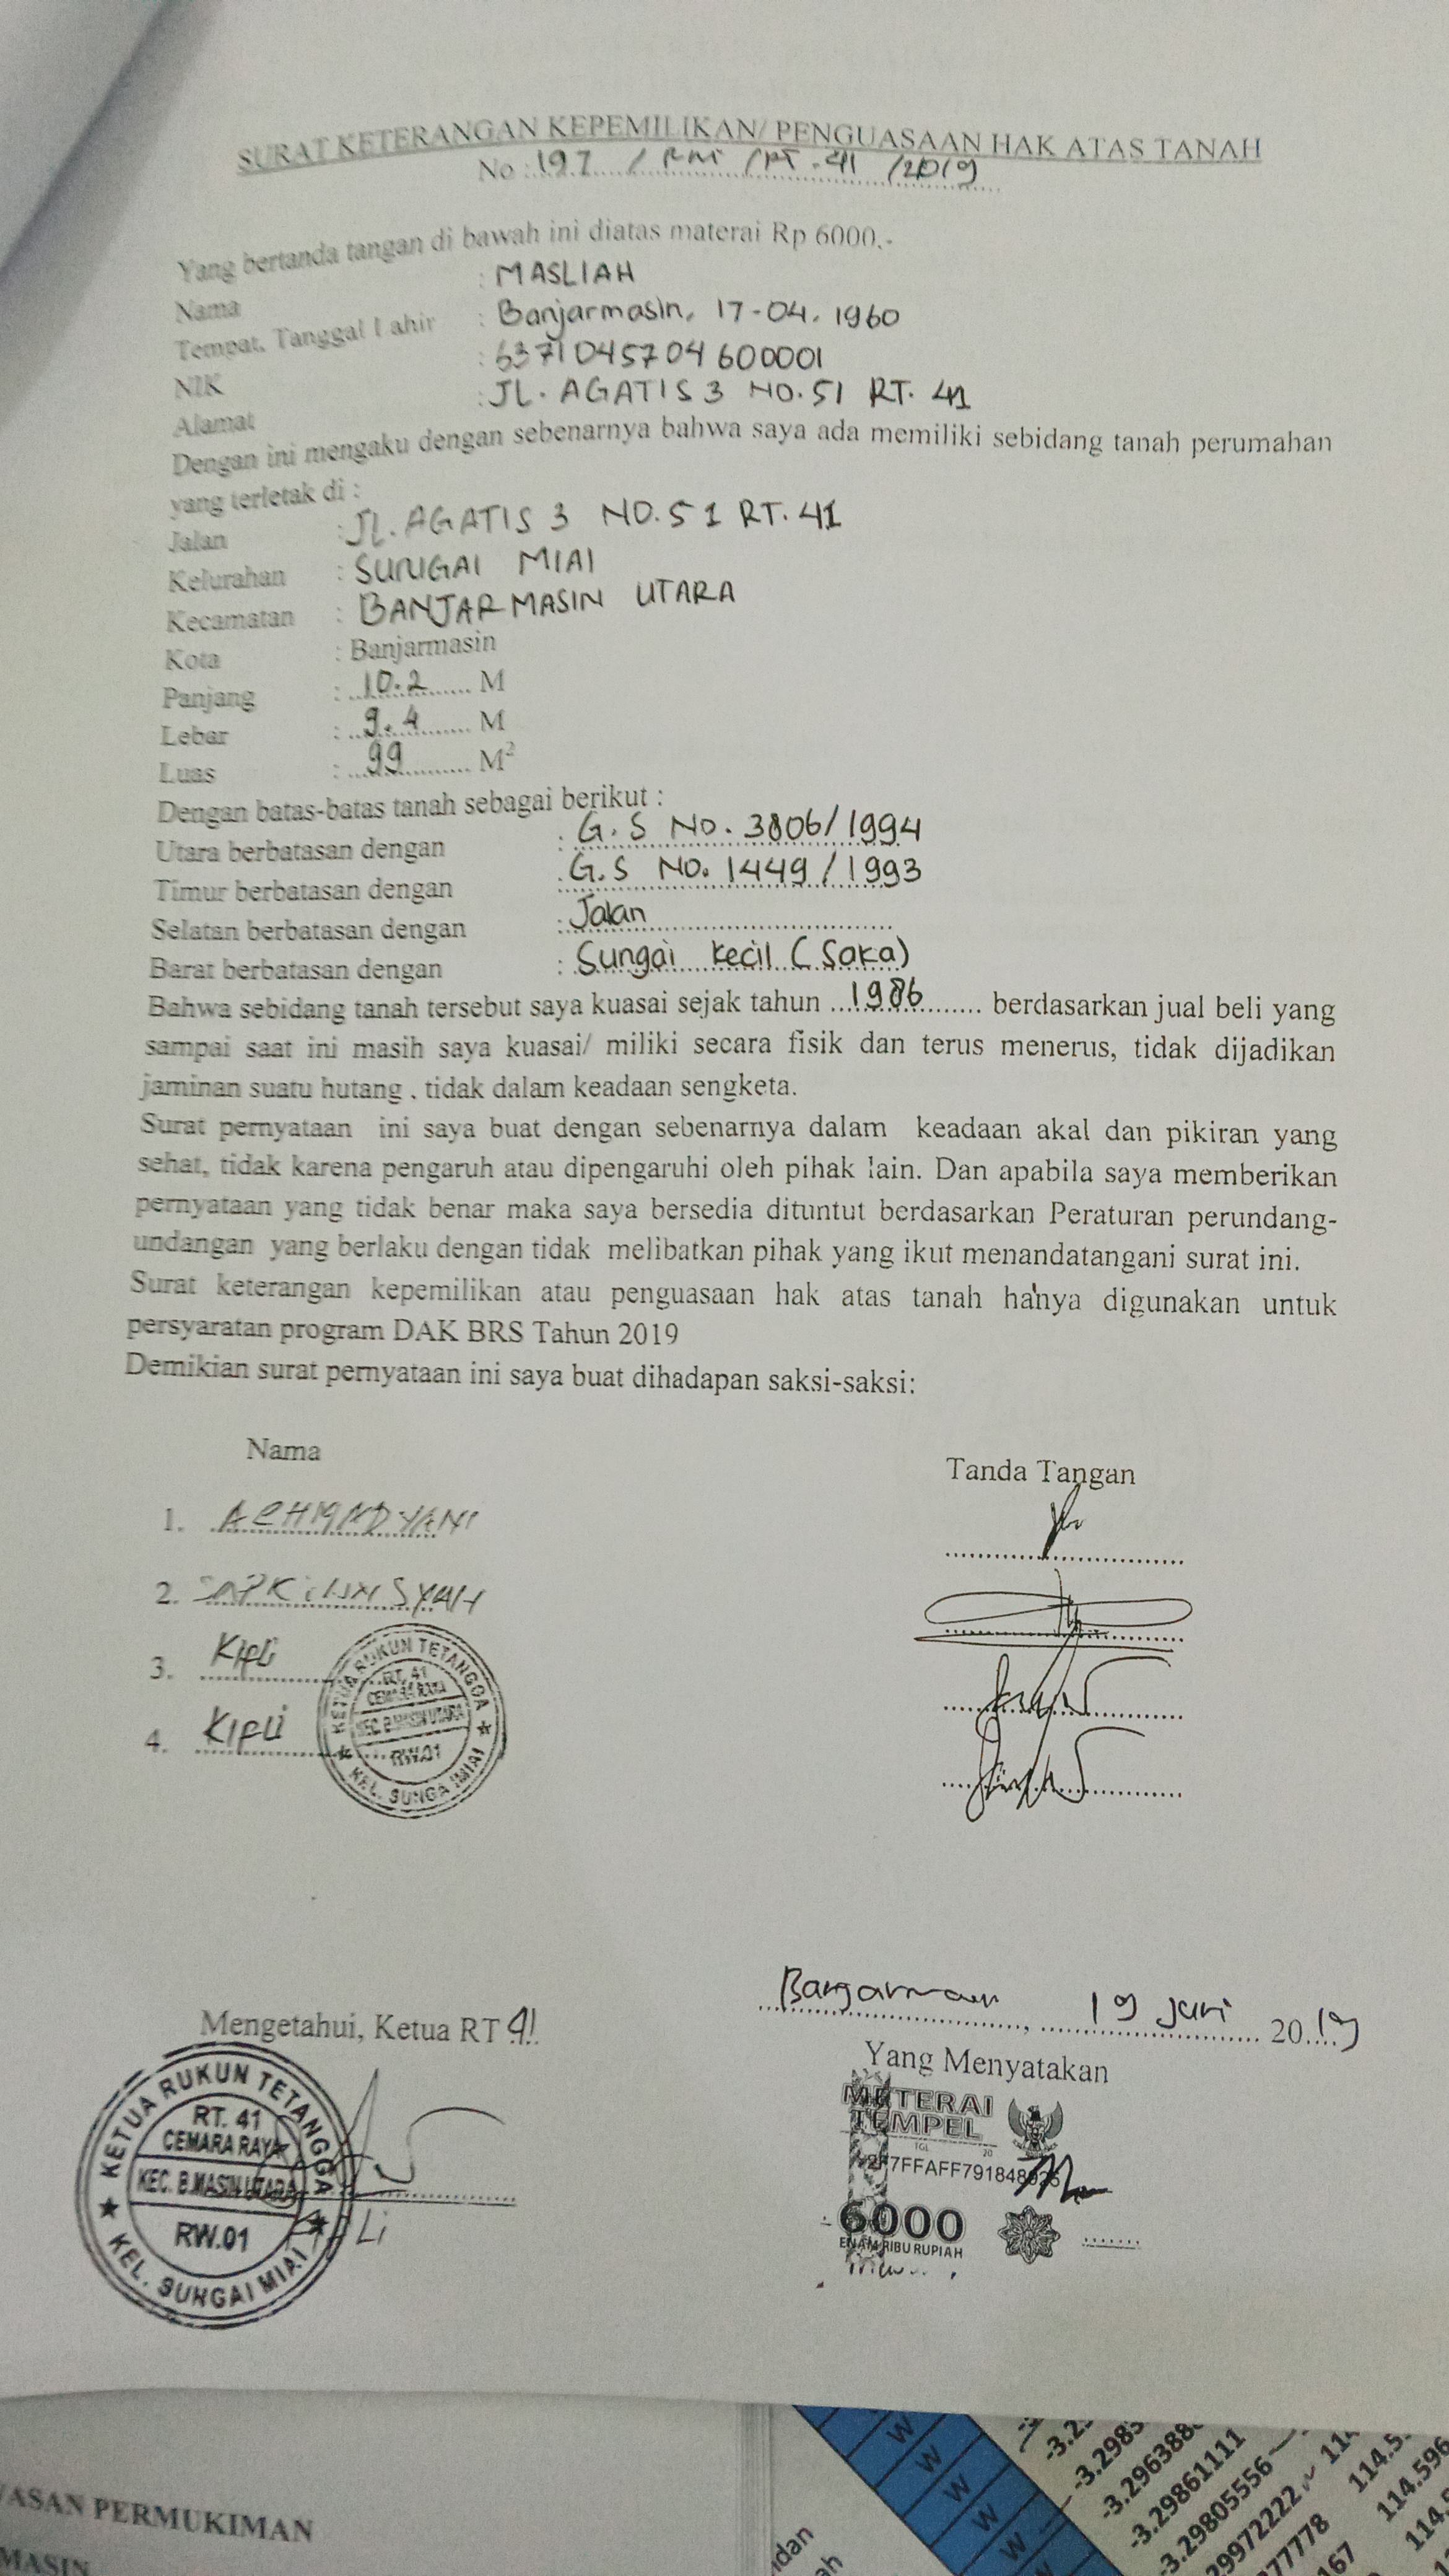 SURAT KETERANGAN KEPEMILIKAN/ PENGUASAAN HAK ATAS TANAH
No : 197 / RM / RT. 41 /2019
Yang bertanda tangan di bawah ini diatas materai Rp 6000,-
Nama : MASLIAH
Tempat, Tanggal Lahir : Banjarmasin, 17-04. 1960
NIK : 6371045704600001
Alamat : JL. AGATIS 3 NO.51 RT. 41
Dengan ini mengaku dengan sebenarnya bahwa saya ada memiliki sebidang tanah perumahan
yang terletak di :
Jalan : JL. AGATIS 3 NO.51 RT.41
Kelurahan : SUNGAI MIAI
Kecamatan : BANJARMASIN UTARA
Kota : Banjarmasin
Panjang : 10.2 M
Lebar : 9.4 M
Luas : 99 M²
Dengan batas-batas tanah sebagai berikut :
Utara berbatasan dengan : G.S NO. 3806/1994
Timur berbatasan dengan : G.S NO. 1449/1993
Selatan berbatasan dengan : Jalan
Barat berbatasan dengan : Sungai kecil (Saka)
Bahwa sebidang tanah tersebut saya kuasai sejak tahun 1986 berdasarkan jual beli yang
sampai saat ini masih saya kuasai/ miliki secara fisik dan terus menerus, tidak dijadikan
jaminan suatu hutang , tidak dalam keadaan sengketa.
Surat pernyataan ini saya buat dengan sebenarnya dalam keadaan akal dan pikiran yang
sehat, tidak karena pengaruh atau dipengaruhi oleh pihak lain. Dan apabila saya memberikan
pernyataan yang tidak benar maka saya bersedia dituntut berdasarkan Peraturan perundang-
undangan yang berlaku dengan tidak melibatkan pihak yang ikut menandatangani surat ini.
Surat keterangan kepemilikan atau penguasaan hak atas tanah hanya digunakan untuk
persyaratan program DAK BRS Tahun 2019
Demikian surat pernyataan ini saya buat dihadapan saksi-saksi:
Nama Tanda Tangan
1. ACHMAD YANI
2.
3. Kipli
4. Kipli
KETUA RUKUN TETANGGA
RT. 41
CEMARA RAYA
KEC. B.MASIN UTARA
RW.01
KEL. SUNGAI MIAI
Banjarmasin, 19 juni 2019
Mengetahui, Ketua RT 41
Yang Menyatakan
KETUA RUKUN TETANGGA
RT. 41
CEMARA RAYA
KEC. B.MASIN UTARA
RW.01
KEL. SUNGAI MIAI
METERAI
TEMPEL
TGL 20
6000
ENAM RIBU RUPIAH
PERMUKIMAN
-3.29861111
-3.29805556
114.596